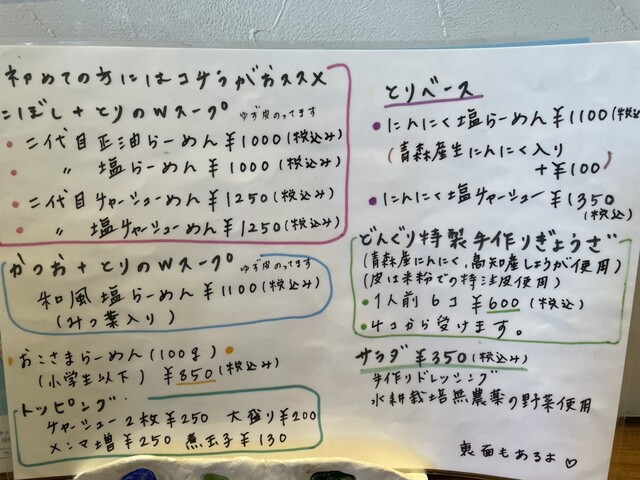 初めての方にはコチラがおススメ
にぼし+とりのWスープ ゆず皮のってます
・二代目正油らーめん¥1000(税込み)
・ 〃 塩らーめん¥1000(税込み)
・二代目チャーシューめん¥1250(税込み)
・ 〃 塩チャーシューめん¥1250(税込み)
かつお+とりのWスープ ゆず皮のってます
和風塩らーめん¥1100(税込み)
(みつ葉入り)
・おこさまらーめん(100g)・
(小学生以下) ¥850(税込み)
トッピング
チャーシュー2枚¥250 大盛り¥200
メンマ増¥250 煮玉子¥130
とりベース
・にんにく塩らーめん¥1100(税込み
(青森産生にんにく入り
+¥100)
・にんにく塩チャーシュー¥1350
(税込み)
どんぐり特製手作りぎょうざ
(青森産にんにく,高知産しょうが使用)
(皮は米粉での特注皮使用)
・1人前6コ ¥600(税込)
・4コから受けます。
サラダ¥350(税込み)
手作りドレッシング
水耕栽培無農薬の野菜使用
裏面もあるよ♡